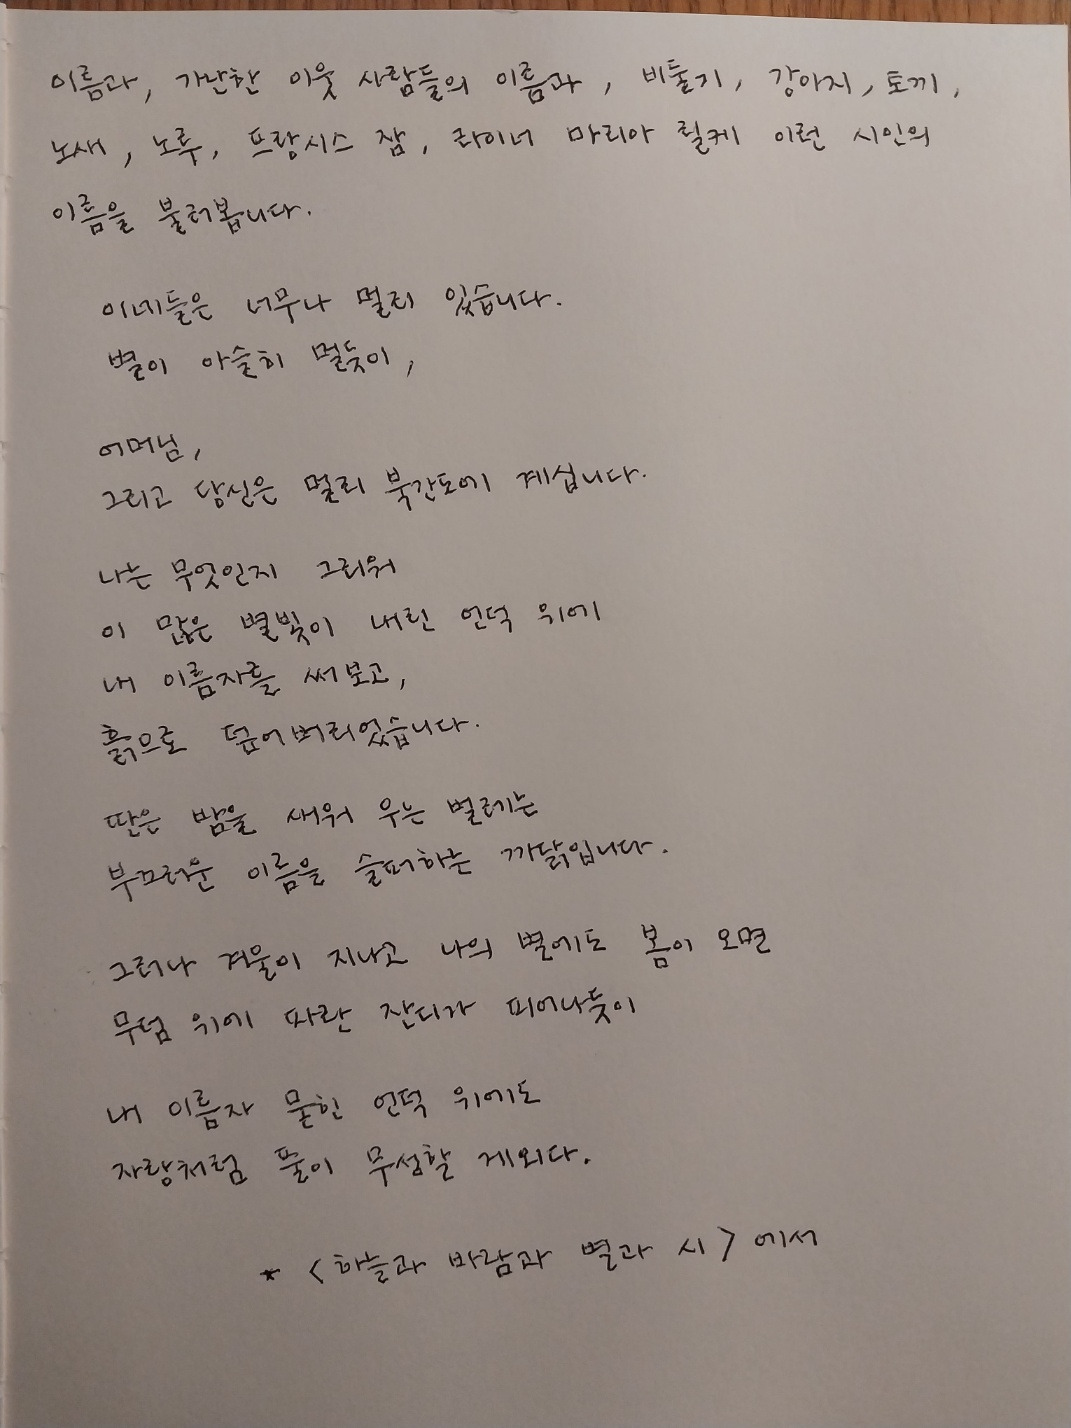 이름과, 가난한 이웃 사람들의 이름과, 비둘기, 강아지, 토끼,
노새, 노루, 프랑시스 잠, 라이너 마리아 릴케 이런 시인의
이름을 불러봅니다.
이네들은 너무나 멀리 있습니다.
별이 아슬히 멀듯이,
어머님,
그리고 당신은 멀리 북간도에 계십니다.
나는 무엇인지 그리워
이 많은 별빛이 내린 언덕 위에
내 이름자를 써보고,
흙으로 덮어버리었습니다.
딴은 밤을 새워 우는 벌레는
부끄러운 이름을 슬퍼하는 까닭입니다.
그러나 겨울이 지나고 나의 별에도 봄이 오면
무덤 위에 파란 잔디가 피어나듯이
내 이름자 묻힌 언덕 위에도
자랑처럼 풀이 무성할 게외다.
* <하늘과 바람과 별과 시> 에서